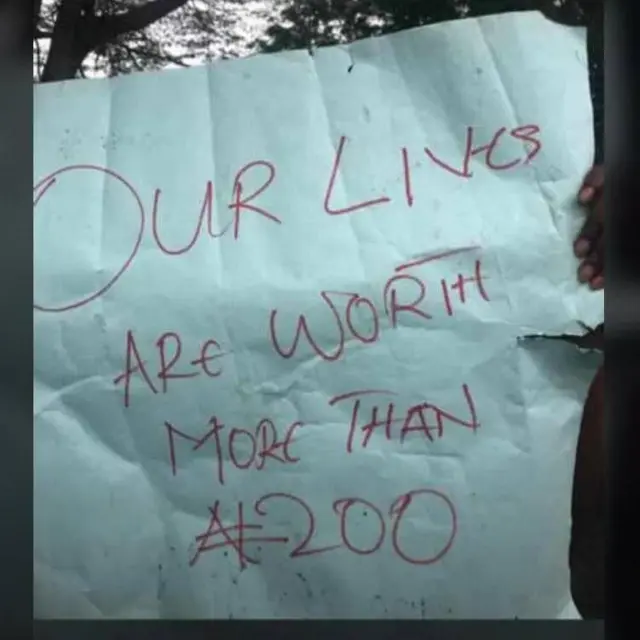 OUR LIVES
ARE WORTH
MORE THAN
₦200